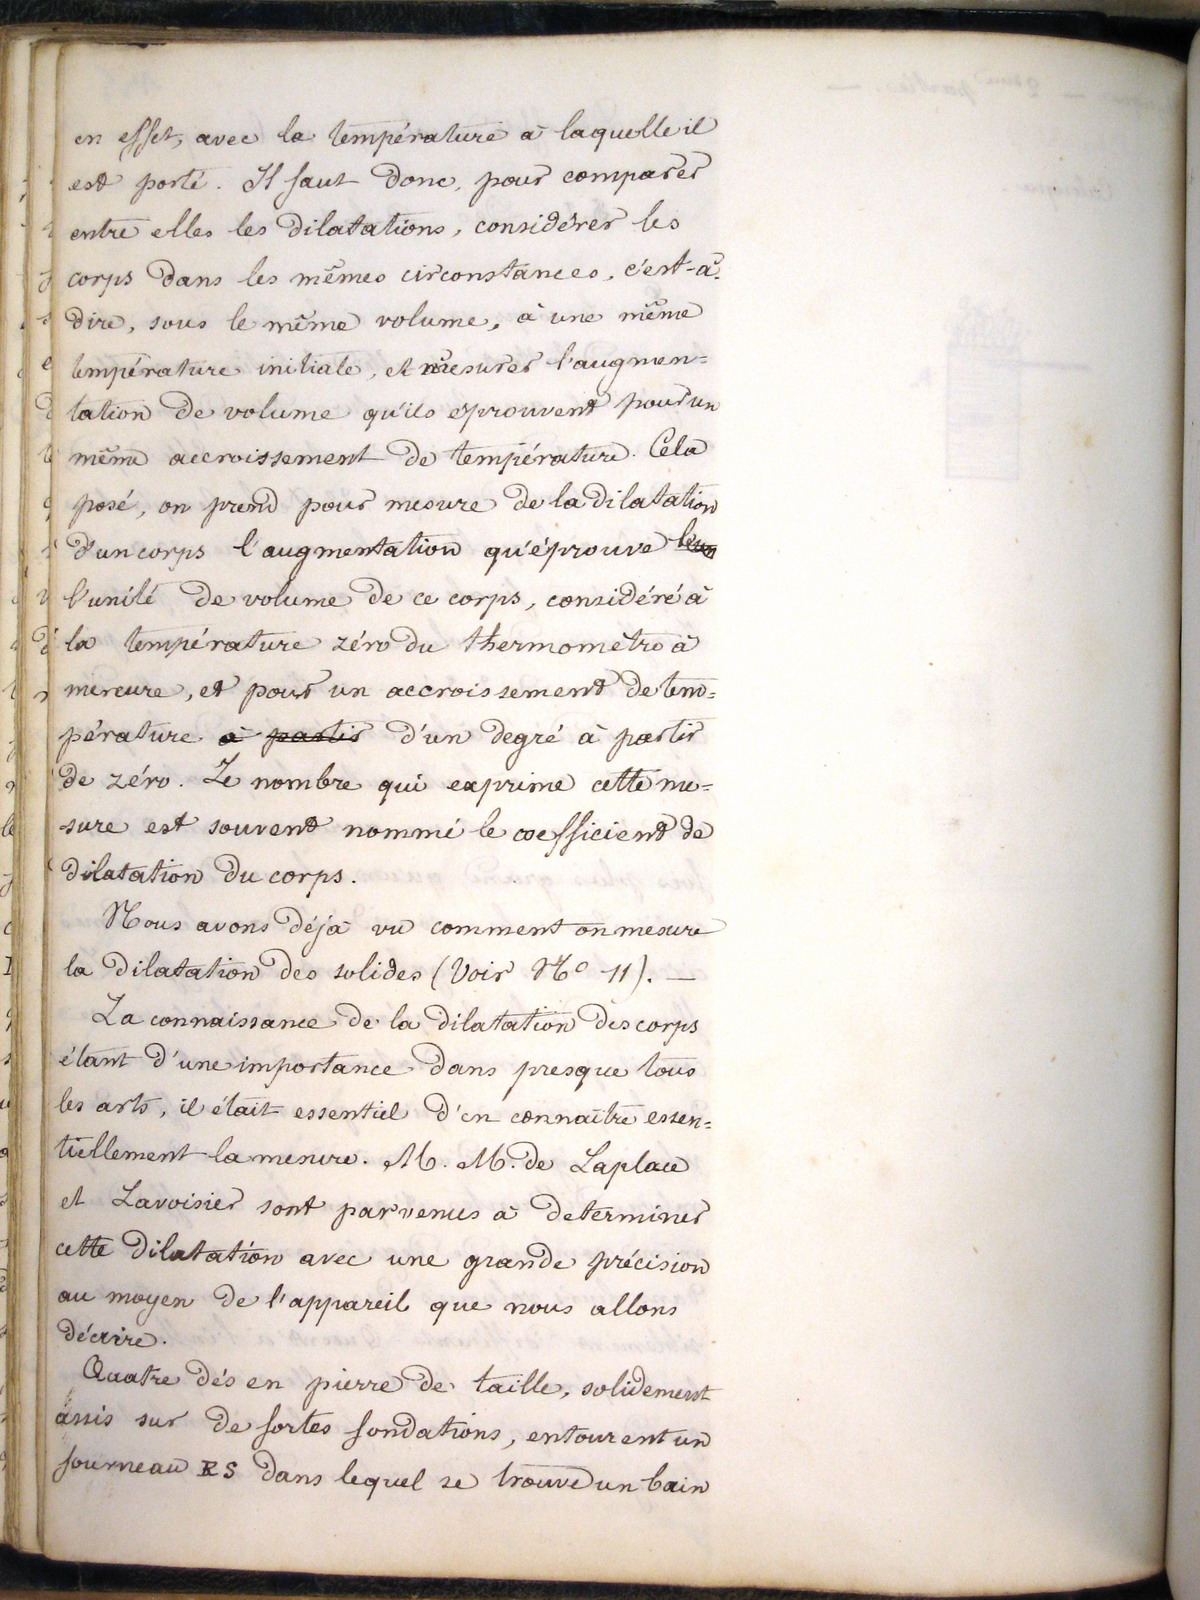 en effet, avec la température à laquelle il
est porté. Il faut donc, pour comparer
entre elles les dilatations, considérer les
corps dans les mêmes circonstances, c'est-à-
dire, sous le même volume, à une même
température initiale, et mesurer l'augmen=
tation de volume qu'ils éprouvent pour un
même accroissement de température. Cela
posé, on prend pour mesure de la dilatation
d'un corps l'augmentation qu'éprouve
l'unité de volume de ce corps, considéré à
la température zéro du thermomètre à
mercure, et pour un accroissement de tem=
pérature à partir d'un degré à partir
de zéro. Le nombre qui exprime cette me=
sure est souvent nommé le coefficient de
dilatation du corps.
Nous avons déjà vu comment on mesure
la dilatation des solides (Voir No 11). —
La connaissance de la dilatation des corps
étant d'une importance dans presque tous
les arts, il était essentiel d'en connaître essen=
tiellement la mesure. M. M. de Laplace
et Lavoisier sont parvenus à déterminer
cette dilatation avec une grande précision
au moyen de l'appareil que nous allons
décrire.
Quatre dés en pierre de taille, solidement
assis sur de fortes fondations, entourent un
fourneau RS dans lequel se trouve un bain